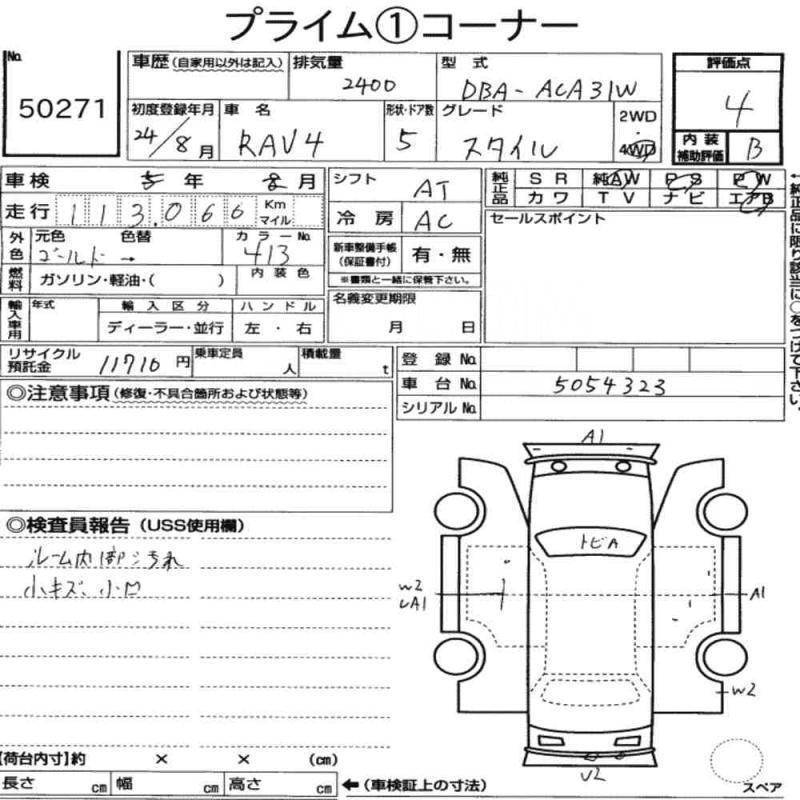 プライム①コーナー
No. 50271
車歴(自家用以外は記入) 排気量 2400 型式 DBA-ACA31W 評価点 4
初度登録年月 24/8月 車名 RAV4 形状・ドア数 5 グレード スタイル 2WD 4WD 内装補助評価 B
車検 年 8月 シフト AT 純正品 SR 純AW PS PW
走行 113,066 Km マイル 冷房 AC カワ TV ナビ エアB
外色 元色 ゴールド 色替 → カラーNo. 413 新車整備手帳(保証書付) 有・無 セールスポイント
燃料 ガソリン・軽油・( ) 内装色 ※書類と一緒に保管下さい。
輸入車用 年式 輸入区分 ディーラー・並行 ハンドル 左・右 名義変更期限 月 日
←純正品に限り該当に○をつけて下さい。
リサイクル預託金 11710円 乗車定員 人 積載量 t 登録No.
車台No. 5054323
シリアルNo.
◎注意事項(修復・不具合箇所および状態等)
◎検査員報告(USS使用欄)
ルーム内部ヨゴレ
小キズ 小凹
A1
トビA
W2
A1
W2
U2
スペア
【荷台内寸】約 × × (cm)
長さ cm 幅 cm 高さ cm ←(車検証上の寸法)